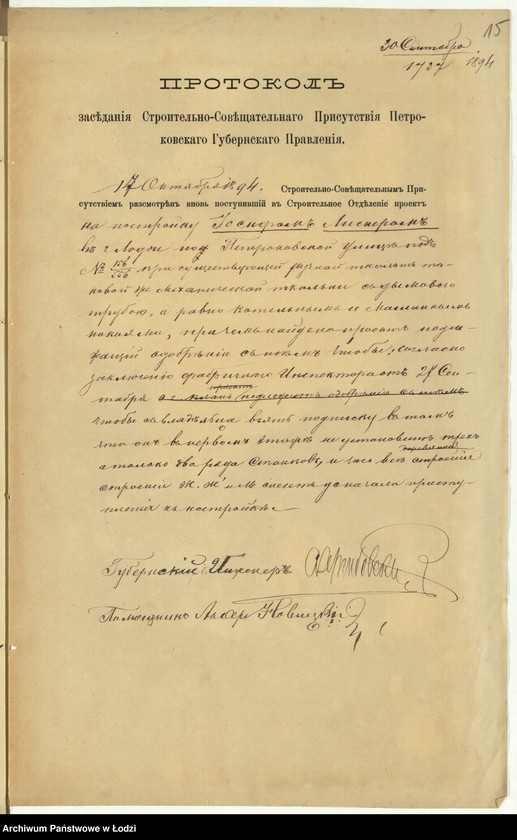 15
30 Сентября
1737 1894
ПРОТОКОЛЪ
засѣданія Строительно-Совѣщательнаго Присутствія Петро-
ковскаго Губернскаго Правленія.
17 Октября 1894. Строительно-Совѣщательнымъ При-
сутствіемъ разсмотрѣнъ вновь поступившій въ Строительное Отдѣленіе проектъ
на постройку
въ г. Лодзи по Петроковской улицѣ подъ
№ при существующей ручной ткальнѣ та-
ковой же механической ткальни съ дымовою
трубою, а равно котельнымъ и машиннымъ
, причемъ найдено: проектъ подле-
жащій одобренію съ тѣмъ чтобы, согласно
заключенію фабричнаго Инспектора отъ 28 Сен-
тября
чтобы съ владѣльца взять подписку въ томъ
что онъ въ первомъ этажѣ не установитъ трехъ
а только два ряда станковъ, и что всѣ
деревянныя
строенія Ж. Ж и снесетъ до начала присту-
пленія къ постройкѣ
Губернскій Инженеръ
Помощникъ
Archiwum Państwowe w Łodzi